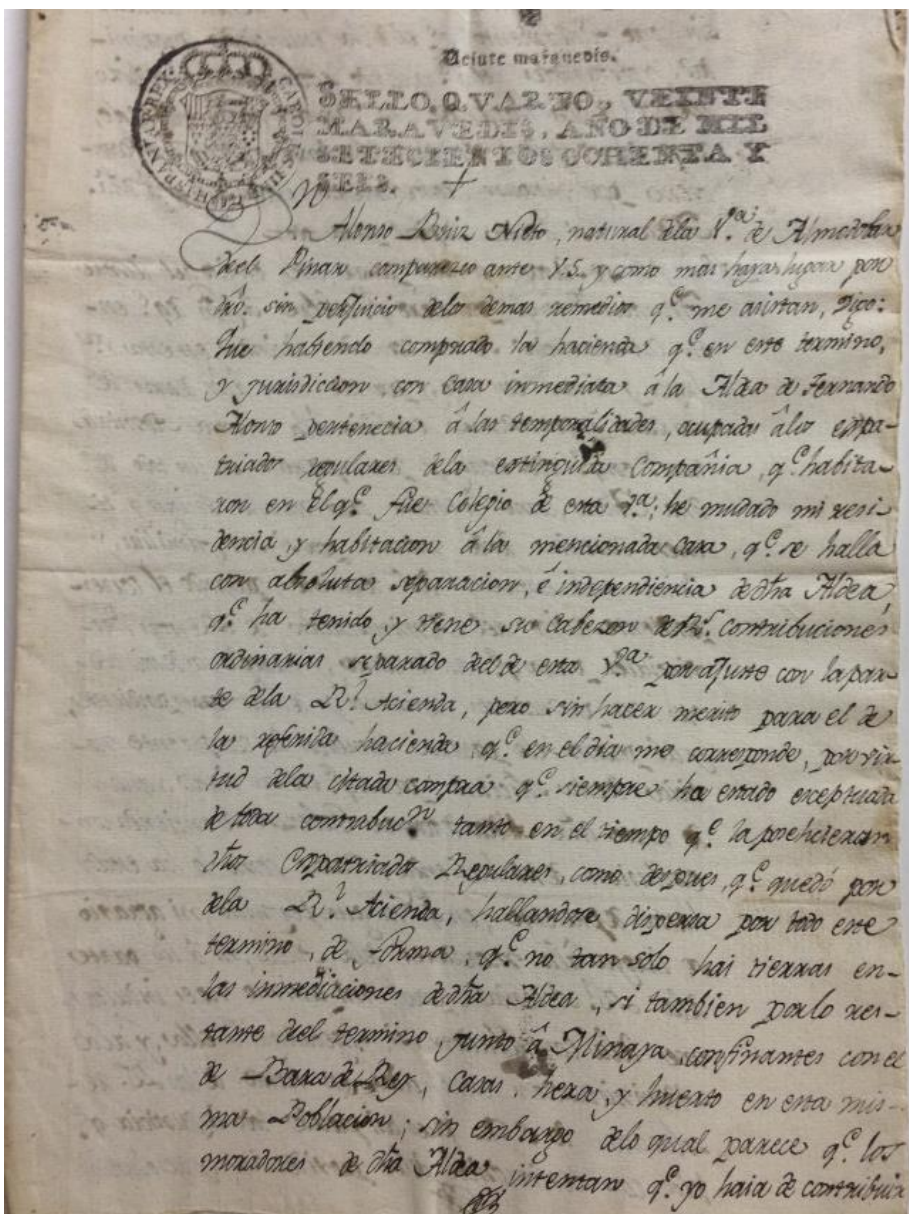 Veinte maravedis.
SELLO QVARTO, VEINTE
MARAVEDIS, AÑO DE MIL
SETECIENTOS OCHENTA Y
SEIS.
Alonso Ruiz Nieto, natural dela V.ª de Almodobar
del Pinar comparezco ante V.S. y como mas haya lugar por
dro. sin perjuicio delos demas remedios q.e me asistan, Digo:
Que habiendo comprado la hacienda q.e en este termino,
y jurisdiccion con casa inmediata â la Aldea de Fernando
Alonso pertenecia â las temporalidades, ocupada âlos expa-
triados regulares dela extinguida Compañia, q.e habita-
ron en El q.e fue Colegio de esta V.ª; he mudado mi resi-
dencia, y habitacion â la mencionada casa, q.e se halla
con absoluta separacion, é independiencia de dha Aldea,
q.e ha tenido, y tiene su Cabezon de R.s Contribuciones
ordinarias separado del de esta V.ª por ajuste con la par-
te dela R.l Acienda, pero sin hacer merito para el de
la referida hacienda q.e en el dia me corresponde, por vir-
tud dela citada compra q.e siempre ha estado exceptuada
de toda contribuc.n tanto en el tiempo q.e la poseheieran
dhos Expatriados Regulares, como despues, q.e quedó por
dela R.l Acienda, hallandose dispersa por todo este
termino, de forma, q.e no tan solo hai tierras en-
las inmediaciones de dha Aldea, si tambien por lo res-
tante del termino, junto â Minaya, confinantes con el
de Bara de Rey, casas, hera, y huerto en esta mis-
ma Poblacion; sin embargo delo qual parece q.e los
moradores de dha Aldea intentan q.e yo haia de contribuir